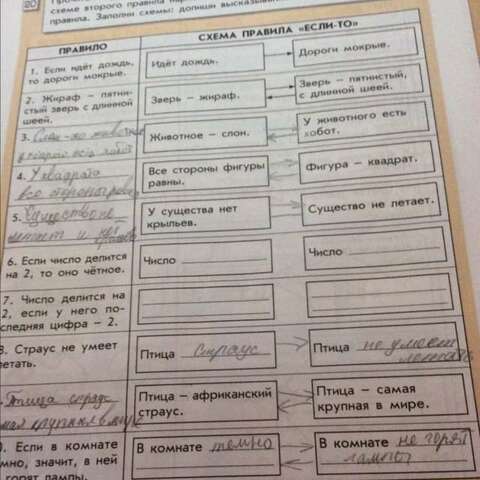 схеме второго правила
правила. Заполни схемы: допиши высказыван
ПРАВИЛО
СХЕМА ПРАВИЛА «ЕСЛИ-ТО»
1. Если идёт дождь,
то дороги мокрые.
Идёт дождь.
Дороги мокрые.
2. Жираф – пятни-
стый зверь с длинной
шеей.
Зверь – жираф.
Зверь – пятнистый,
с длинной шеей.
3.
Животное – слон.
У животного есть
хобот.
4. У квадрата
все стороны
Все стороны фигуры
равны.
Фигура – квадрат.
5. Существо не
У существа нет
крыльев.
Существо не летает.
6. Если число делится
на 2, то оно чётное.
Число
Число
7. Число делится на
2, если у него по-
следняя цифра – 2.
8. Страус не умеет
летать.
Птица страус
Птица не умеет
летать
Птица
Птица – африканский
страус.
Птица – самая
крупная в мире.
Если в комнате
мно, значит, в ней
горят лампы.
В комнате темно
В комнате не горят
лампы